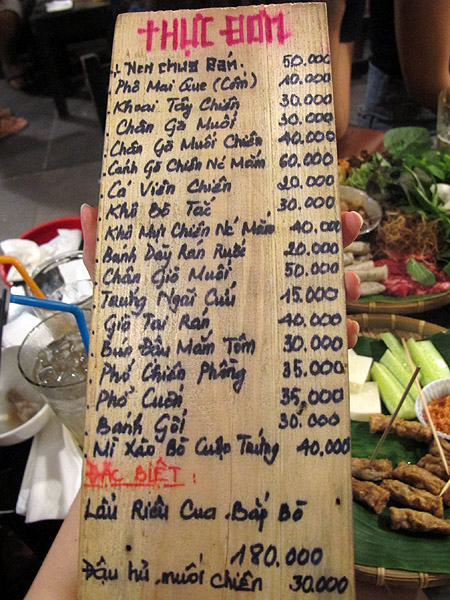 THỰC ĐƠN
+ Nem chua Rán. 50.000
Phô Mai Que (Cốm) 40.000
Khoai Tây Chiên 30.000
Chân Gà Muối 30.000
Chân Gà Muối Chiên 40.000
Cánh Gà Chiên Nc Mắm 60.000
Cá Viên Chiên 20.000
Khô Bò Tắc 30.000
Khô Mực Chiên Nc Mắm 40.000
Banh Dầy Rán Ruốc 20.000
Chân Giò Muối 50.000
Trứng Ngãi Cứu 15.000
Giò Tai Rán 40.000
Bún Đậu Mắm Tôm 30.000
Phở Chiên Phồng 35.000
Phở Cuốn 35,000
Banh Gối 30.000
Mì Xào Bò Cuộn Trứng 40,000
ĐẶC BIỆT :
Lẩu Riêu Cua Bắp Bò
180.000
Đậu hủ muối chiên 30.000